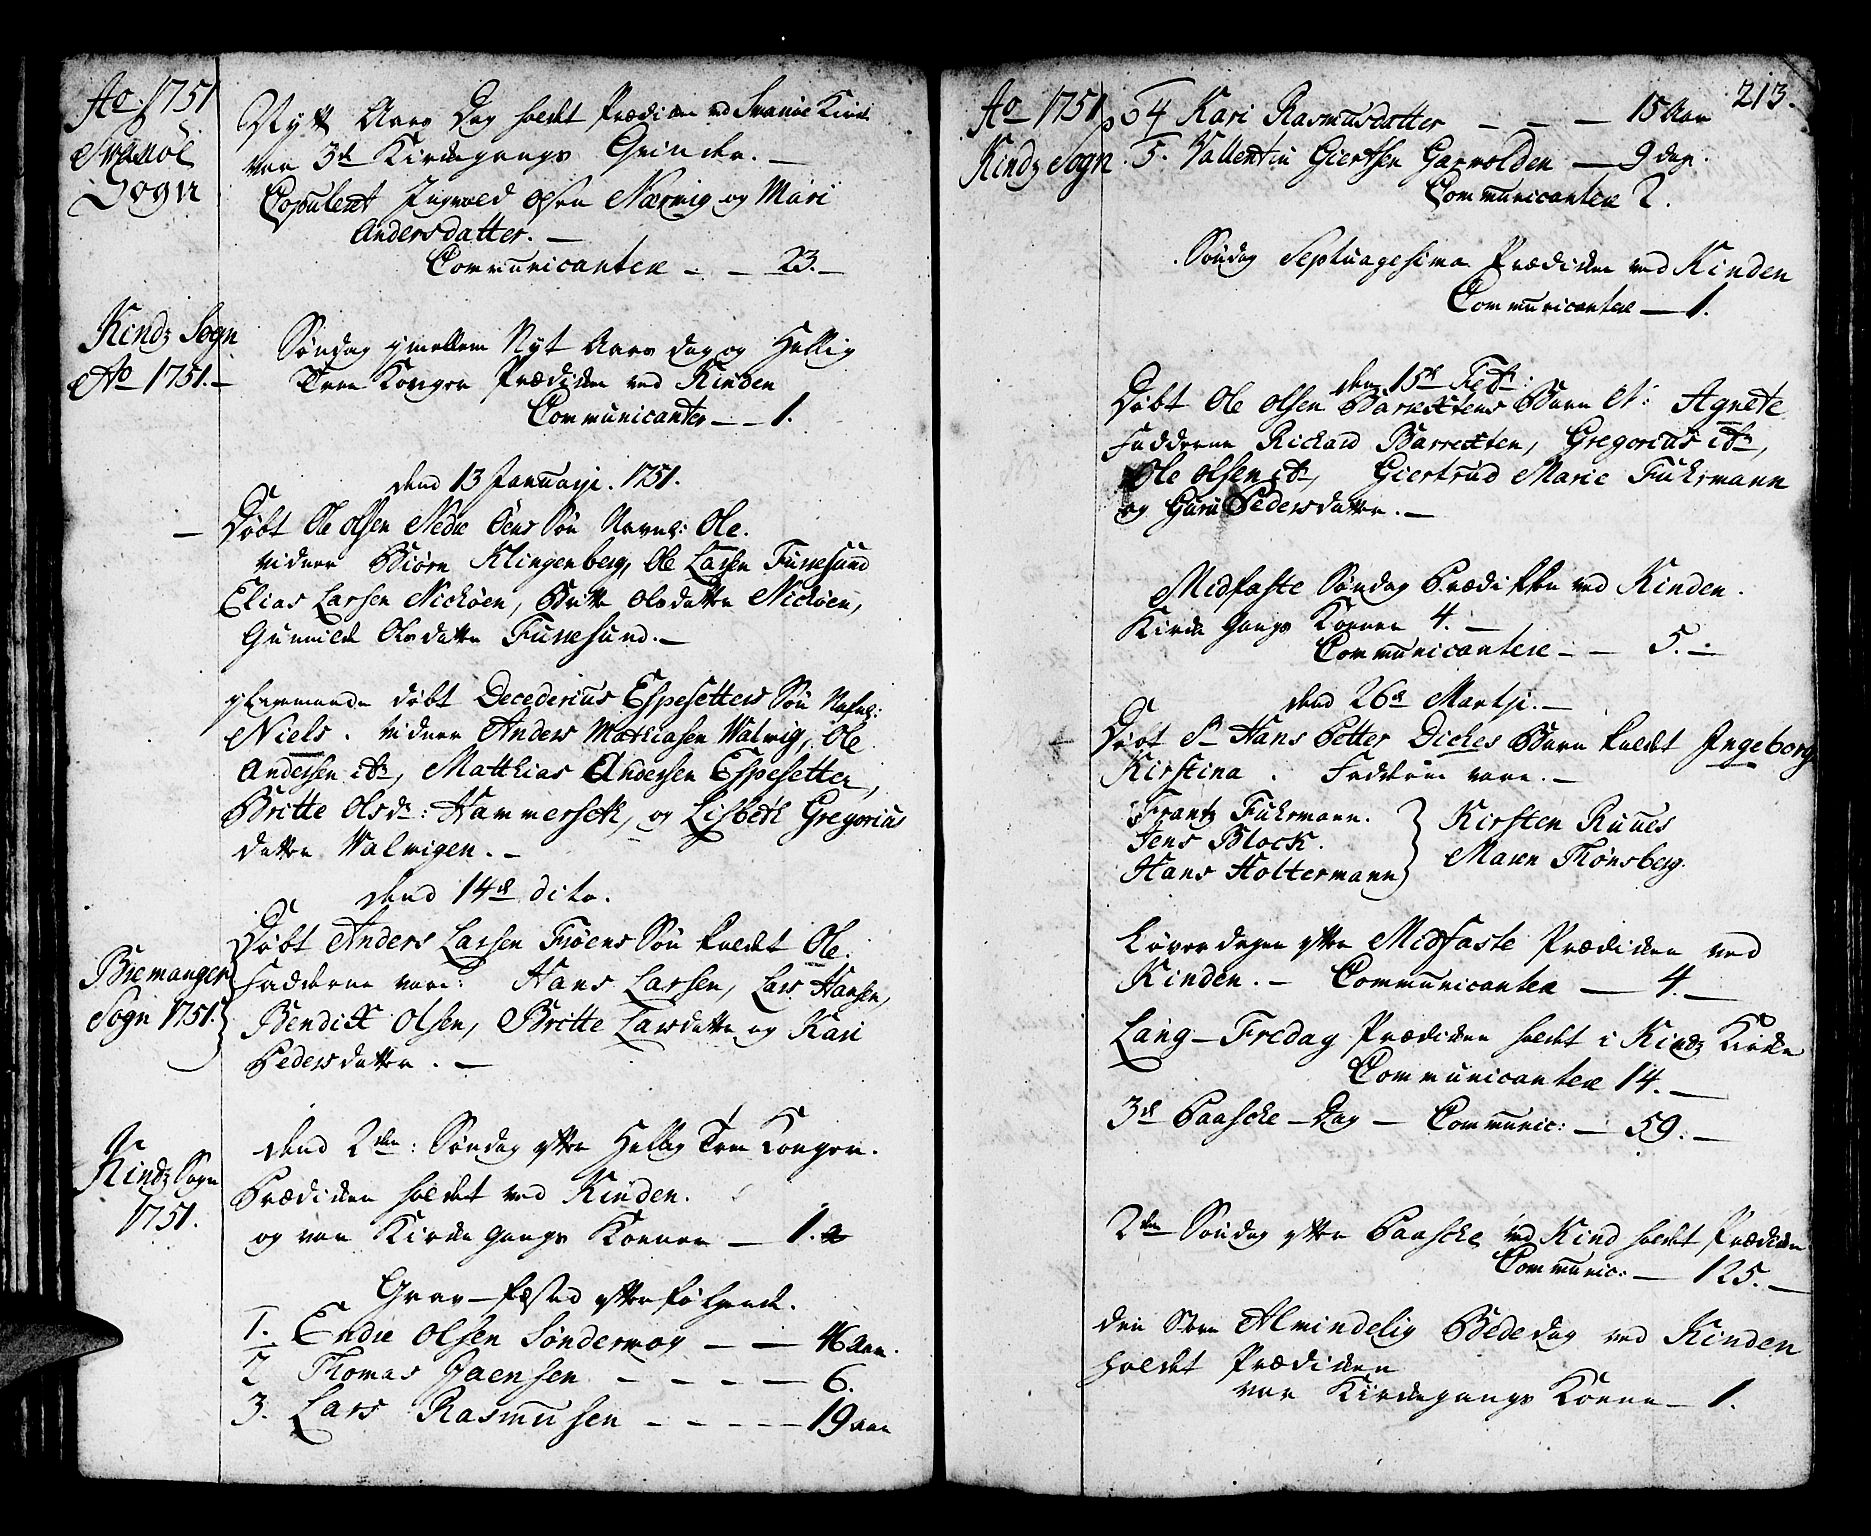 Ao 1751
Svanöe
Sogn
Nytt Aars Dag holdt Prædiken ved Svanöe Kirke
var 3de Kirkegangs Qvinder. —
Copulerit Ingvald Olsen Nærvig og Mari
Andersdatter. —
Communicantere - - 23. —
Kindz Sogn
Ao 1751. —
Söndag imellem Nyt Aars dag og Hellig
Tree Konger Prædiken ved Kinden
Communicanter — 1.
dend 13 Januarji. 1751.
— Döbt Ole Olsen Nedre Öens Sön Navnl: Ole.
vidner Biörn Klingenberg, Ole Larsen Furresund
Elias Larsen Nicköen, Britte Olsdatter Nicköen,
Gunnild Olsdatter Furresund. —
hiemmende döbt Decederius Espesetters Sön Nafnl:
Niels. vidner Anders Mathiasen Walvig, Ole
Andersen ibm, Matthias Andersen Espesetter,
Britte Olsdr: Hammersett, og Lisbeth Gregorius
datter Walvigen. —
dend 14de dito.
Bremanger
Sogn 1751.
Döbt Anders Larsen Fröens Sön kaldet Ole.
Fadderne vare: Hans Larsen, Lars Hansen,
Bendix Olsen, Britte Larsdatter og Kari
Pedersdatter. —
Kindz Sogn
1751.
dend 2den: Söndag efter Hellig Tree Konger.
Prædiken holdet ved Kinden.
og var Kirke gangs Koener — 1.
Grav-fæsted efterfölgende.
1. Endre Olsen Söndervog — — 46 Aar.
2 Thomas Jaensen - - - — 6.
3. Lars Rasmusen - - - — 19 aar
213.
Ao 1751
Kindz Sogn
4 Kari Rasmusdatter - - — 15 Aar
5. Vallentin Giertsen Garvolden — 9 dag.
Communicantere 2.
Söndag Septuagesima Prædiken ved Kinden
Communicantere — 1.
den 15de Febr:
Döbt Ole Olsen Barexstens Barn N: Agnete
Fadderne Rickard Barrexten, Gregorius ibm,
Ole Olsen ibm, Giertrud Marie Fuhrmann
og Guri Pedersdatter. —
Midfaste Söndag Prædikken ved Kinden.
Kirke gangs Koener 4. —
Communicantere - - 5. —
dend 26de Martji. —
Döbt Sr Hans Petter Dickes Barn kaldet Ingeborg
Kirstina. Fadderne vare. —
Frantz Fuhrmann.
Jens Block.
Hans Holtermann
Kirsten Ruues
Maren Thönsberg.
Löverdagen efter Midfaste Prædiken ved
Kinden. - Communicantere — 4. —
Lang-Fredag Prædiken holdet i Kindz Kirke
Communicantere 14. —
3de Paaske-Dag — Communic: — 59. —
2den Söndag efter Paaske ved Kind holdt Prædiken
Communic: — 125. —
den Store Almindelig Bededag ved Kinden
holdet Prædiken
var Kirkegangs Koene — 1.